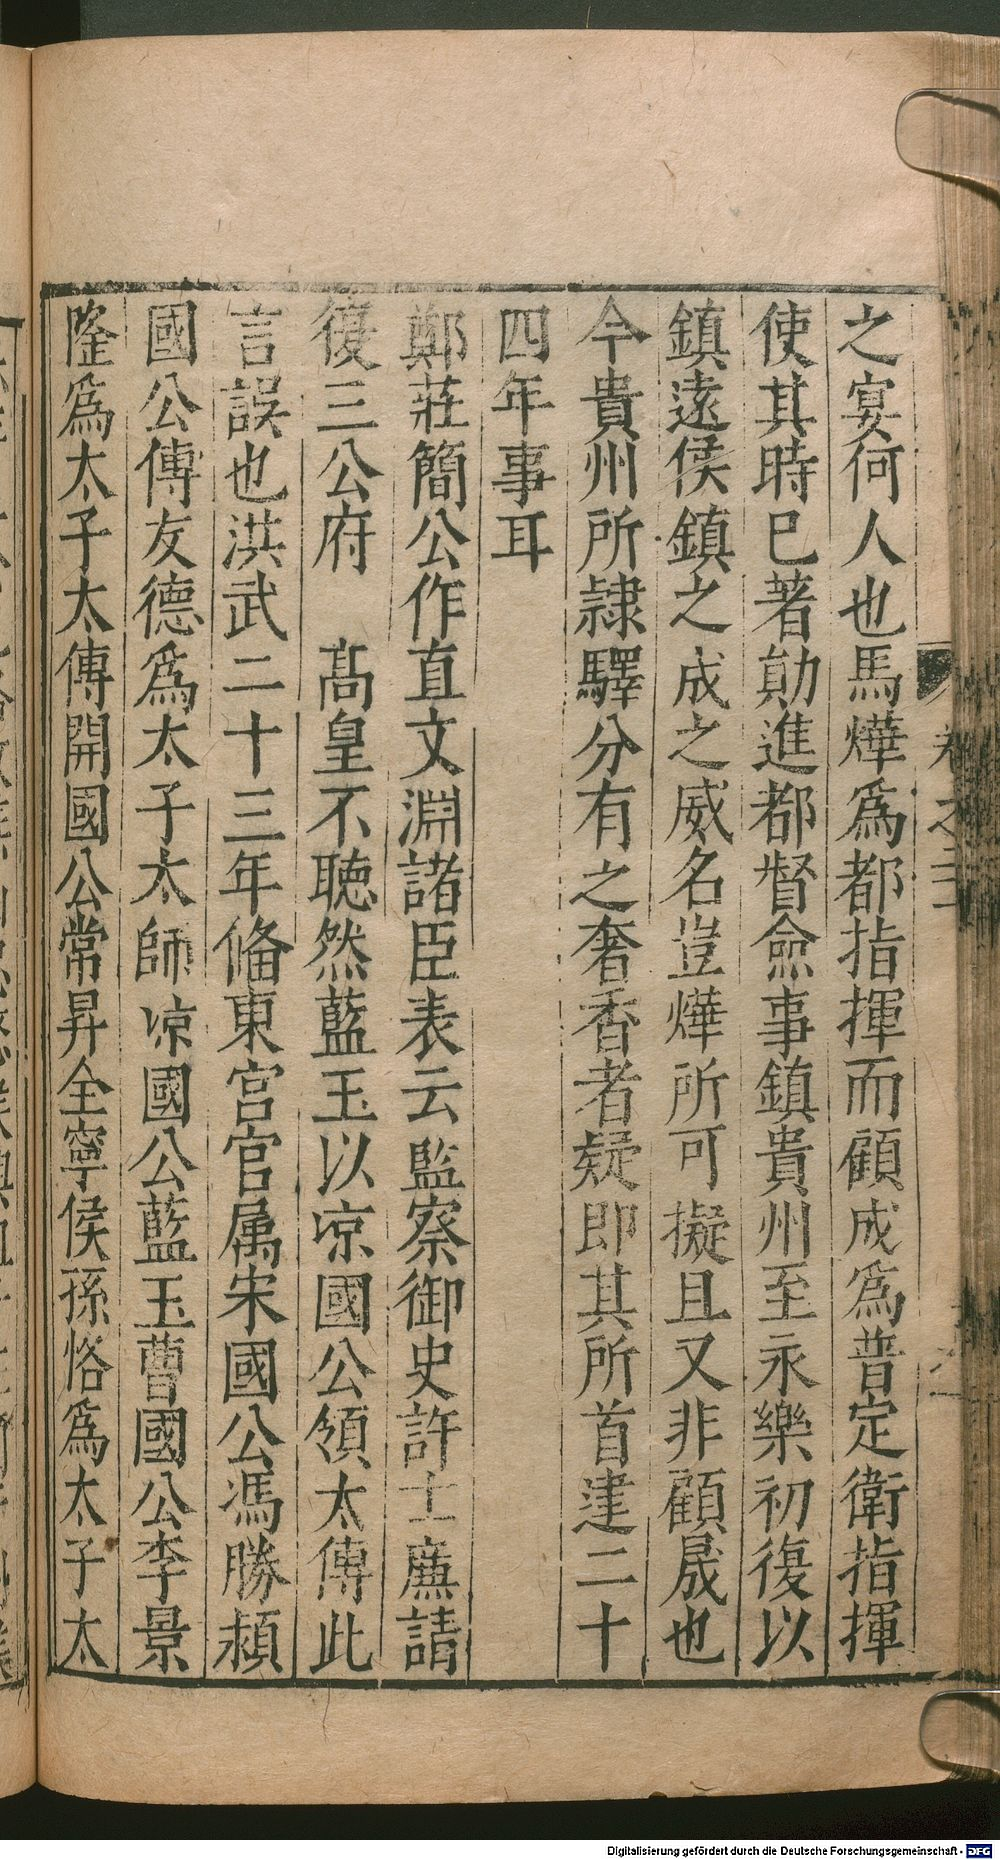 之宴何人也馬燁爲都指揮而顧成爲普定衛指揮
使其時已著勛進都督僉事鎮貴州至永樂初復以
鎮遠侯鎮之成之威名豈燁所可擬且又非顧晟也
今貴州所隷驛分有之奢香者疑即其所首建二十
四年事耳
鄭莊簡公作直文淵諸臣表云監察御史許士廉請
復三公府　高皇不聴然藍玉以凉國公領太傅此
言誤也洪武二十三年偹東宮官属宋國公馮勝頴
國公傅友德爲太子太師凉國公藍玉曹國公李景
隆爲太子太傅開國公常昇全寧侯孫恪爲太子太
Digitalisierung gefördert durch die Deutsche Forschungsgemeinschaft - DFG